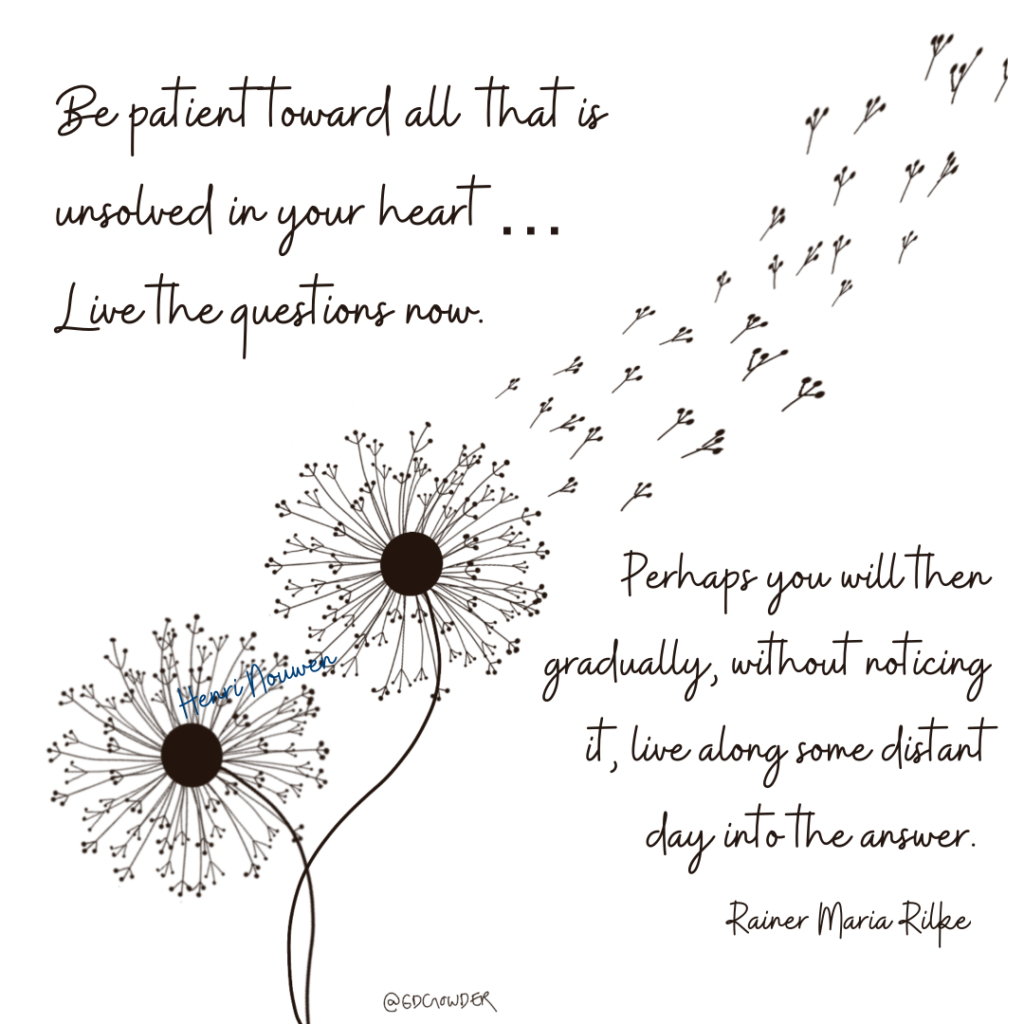 Be patient toward all that is
unsolved in your heart ...
Live the questions now.
Henri Nouwen
Perhaps you will then
gradually, without noticing
it, live along some distant
day into the answer.
Rainer Maria Rilke
@GDCROWDER